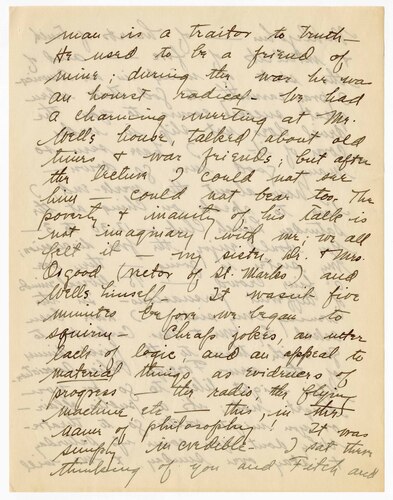 man is a traitor to truth —
He used to be a friend of
mine; during the war he was
an honest radical — We had
a charming meeting at Mr.
Wells house, talked about old
times & war friends; but after
the lecture I could not see
him — could not bear too. The
poverty & inanity of his talk is
not imaginary with me; we all
felt it — my sister, Dr. & Mrs.
Osgood (rector of St. Marks) and
Wells himself — It wasn't five
minutes before we began to
squirm — Cheap jokes, an utter
lack of logic, and an appeal to
material things as evidences of
progress — the radio, the flying
machine etc — this, in the
name of philosophy! It was
simply incredible I sat there
thinking of you and Fitch and